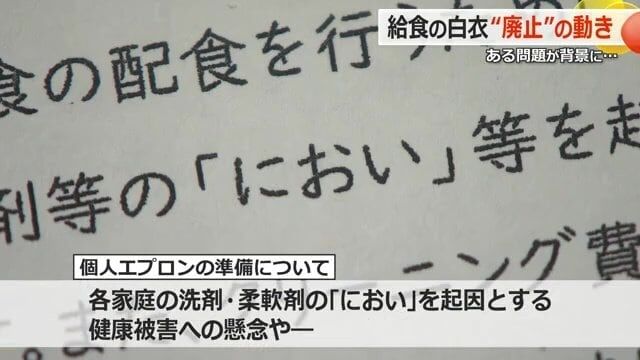 給食の白衣“廃止”の動き
ある問題が背景に…
食の配食を行
剤等の「におい」等を起
ーニング費
。また、
個人エプロンの準備について
各家庭の洗剤・柔軟剤の「におい」を起因とする
健康被害への懸念や―